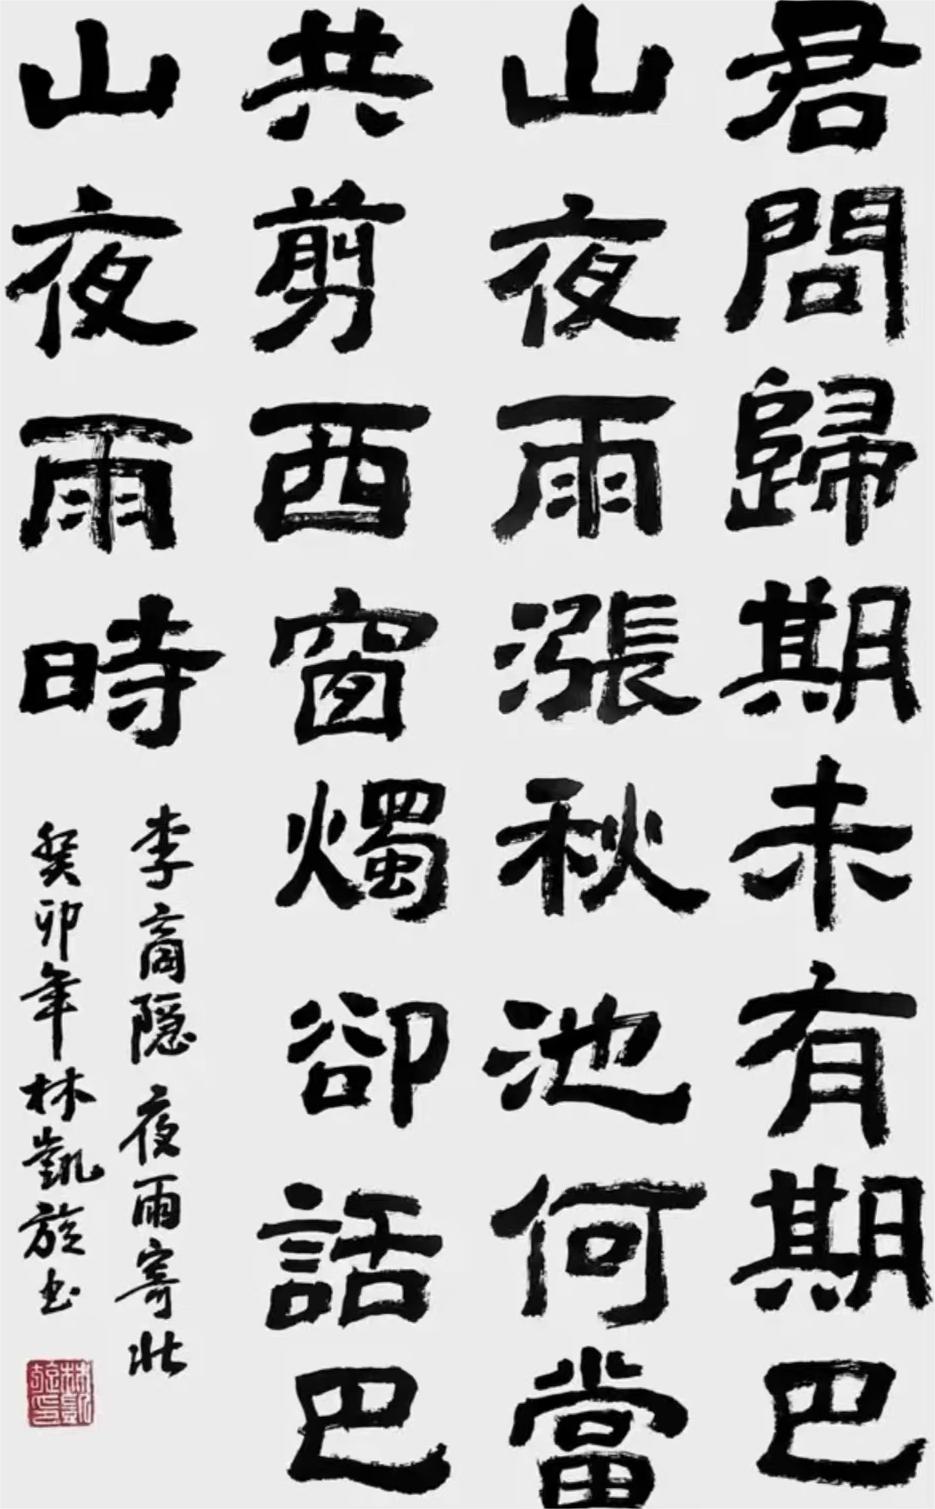 君問歸期未有期巴
山夜雨漲秋池何當
共剪西窗燭卻話巴
山夜雨時
李商隐夜雨寄北
癸卯年林凱旋书